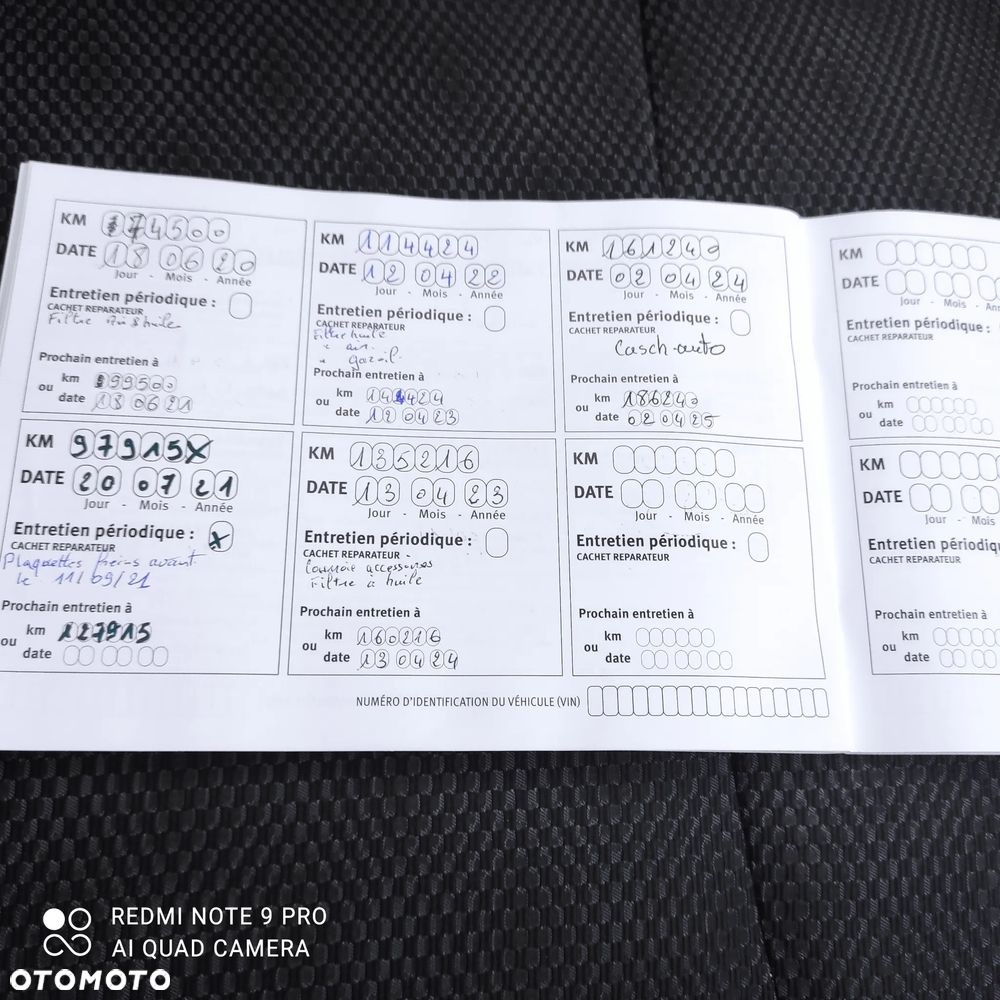 KM 74500
DATE 18 06 20
Jour - Mois - Année
Entretien périodique :
CACHET REPARATEUR
Filtre huile
Prochain entretien à
km 99500
ou
date 18 06 21
KM 97915X
DATE 20 07 21
Jour - Mois - Année
Entretien périodique : X
CACHET REPARATEUR
Plaquettes freins avant
le 11/09/21
Prochain entretien à
km 127915
ou
date
KM 114424
DATE 12 04 22
Jour - Mois - Année
Entretien périodique :
CACHET REPARATEUR
Filtre huile
" air
" gazoil
Prochain entretien à
km 144424
ou
date 12 04 23
KM 135216
DATE 13 04 23
Jour - Mois - Année
Entretien périodique :
CACHET REPARATEUR -
Courroie accessoires
Filtre à huile
Prochain entretien à
km 160216
ou
date 13 04 24
KM 161240
DATE 02 04 24
Jour - Mois - Année
Entretien périodique :
CACHET REPARATEUR
Casch-auto
Prochain entretien à
km 186240
ou
date 02 04 25
KM
DATE
Jour - Mois - Année
Entretien périodique :
CACHET REPARATEUR
Prochain entretien à
km
ou
date
NUMÉRO D'IDENTIFICATION DU VÉHICULE (VIN)
KM
DATE
Jour - Mois - An
Entretien périodique :
CACHET REPARATEUR
Prochain entretien à
km
ou
date
KM
DATE
Jour - Mois - A
Entretien périodiq
CACHET REPARATEUR
Prochain entretien à
km
ou
date
REDMI NOTE 9 PRO
AI QUAD CAMERA
OTOMOTO